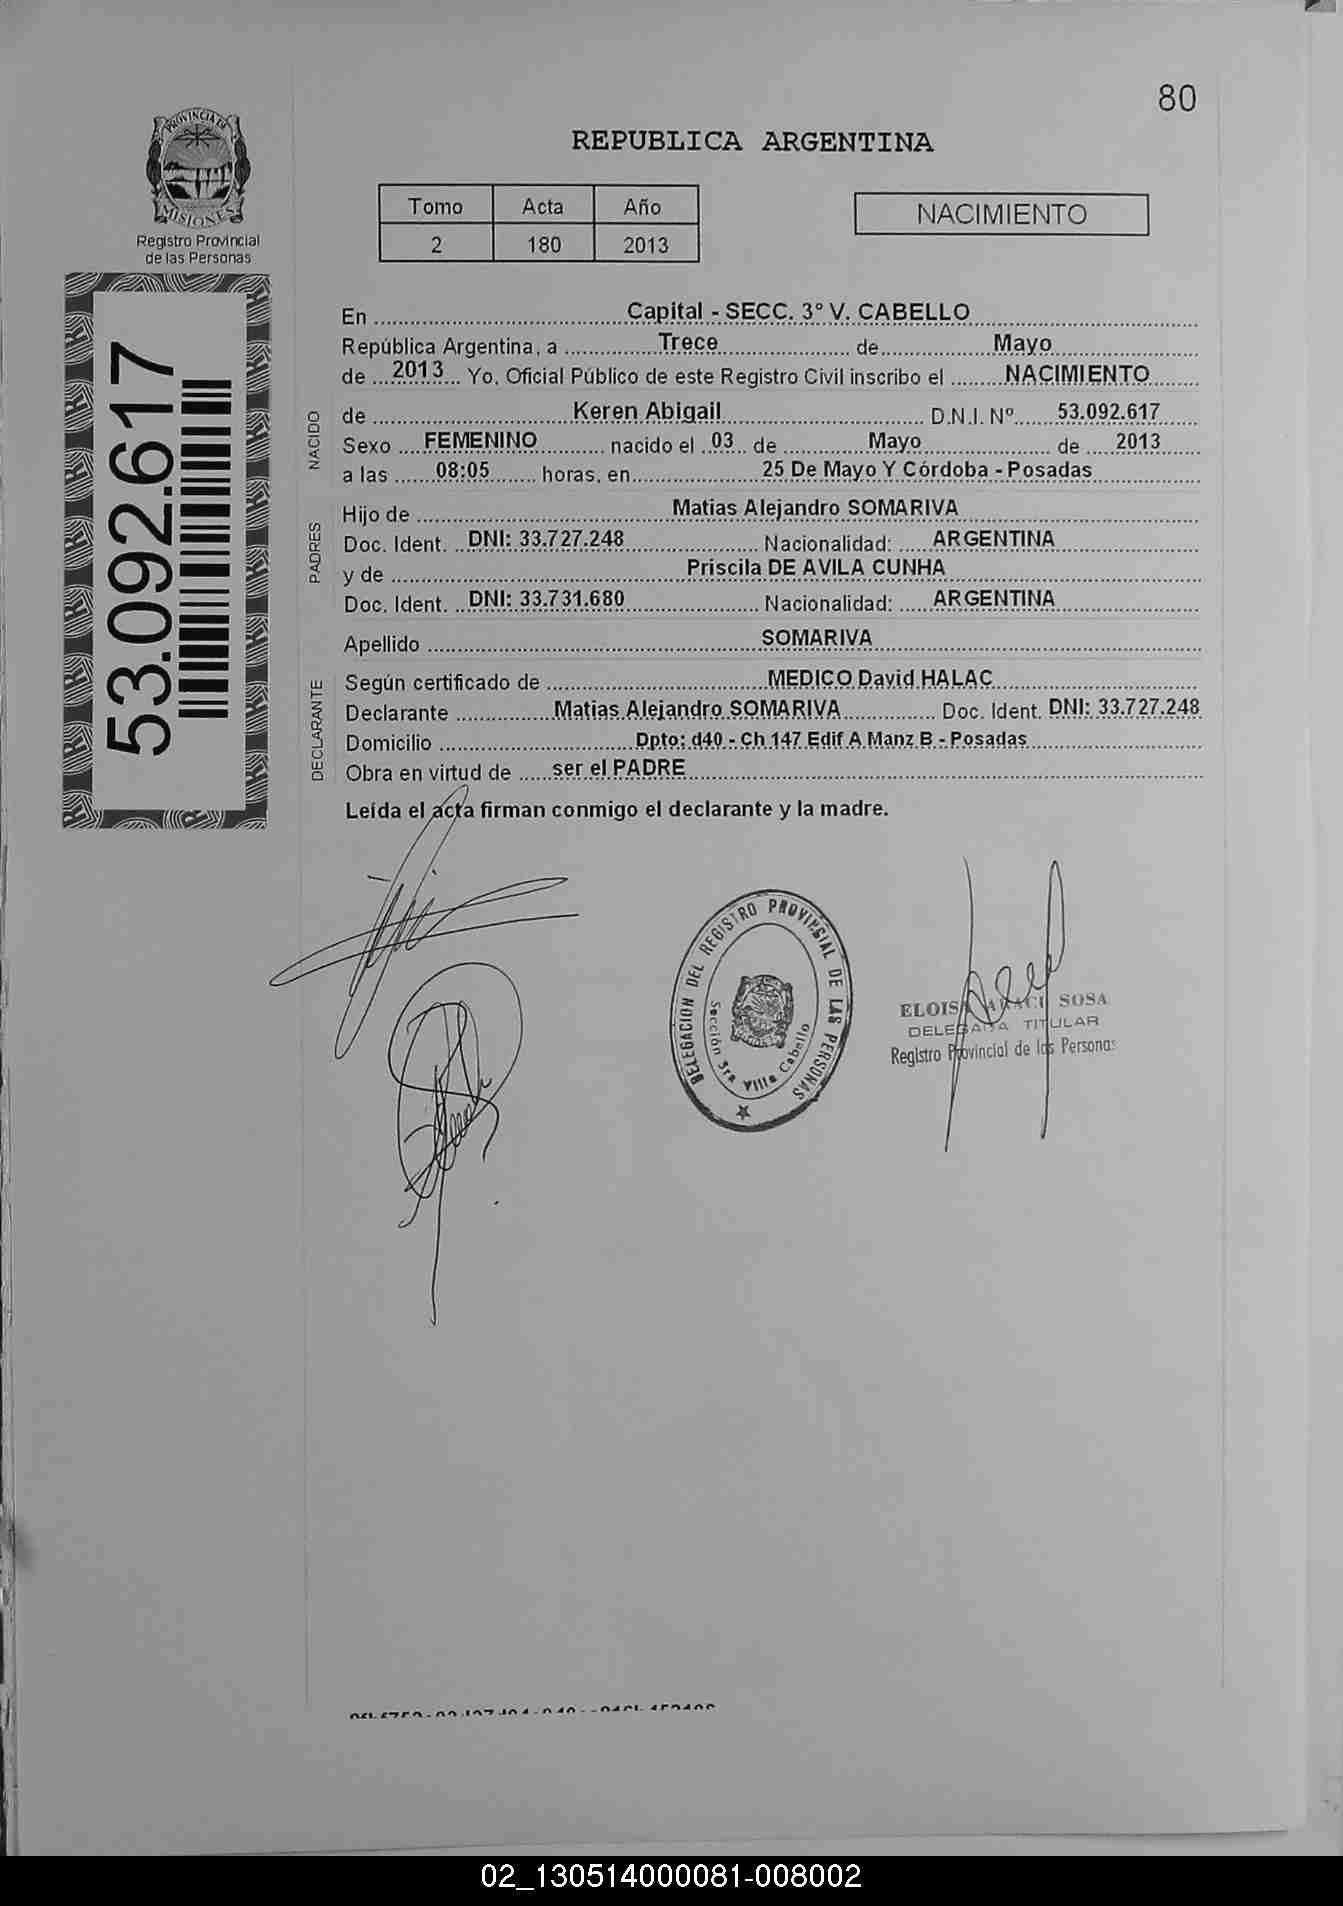 80
PROVINCIA DE
MISIONES
Registro Provincial
de las Personas
REPUBLICA ARGENTINA
Tomo Acta Año
2 180 2013
NACIMIENTO
53.092.617
En Capital - SECC. 3° V. CABELLO
República Argentina, a Trece de Mayo
de 2013 Yo, Oficial Público de este Registro Civil inscribo el NACIMIENTO
NACIDO
de Keren Abigail D.N.I. Nº 53.092.617
Sexo FEMENINO nacido el 03 de Mayo de 2013
a las 08:05 horas, en 25 De Mayo Y Córdoba - Posadas
PADRES
Hijo de Matias Alejandro SOMARIVA
Doc. Ident. DNI: 33.727.248 Nacionalidad: ARGENTINA
y de Priscila DE AVILA CUNHA
Doc. Ident. DNI: 33.731.680 Nacionalidad: ARGENTINA
Apellido SOMARIVA
DECLARANTE
Según certificado de MEDICO David HALAC
Declarante Matias Alejandro SOMARIVA Doc. Ident. DNI: 33.727.248
Domicilio Dpto: d40 - Ch 147 Edif A Manz B - Posadas
Obra en virtud de ser el PADRE
Leída el acta firman conmigo el declarante y la madre.
DELEGACION DEL REGISTRO PROVINCIAL DE LAS PERSONAS
Sección 3ra Villa Cabello
SOSA
DELEGADA TITULAR
Registro Provincial de las Personas
02_130514000081-008002